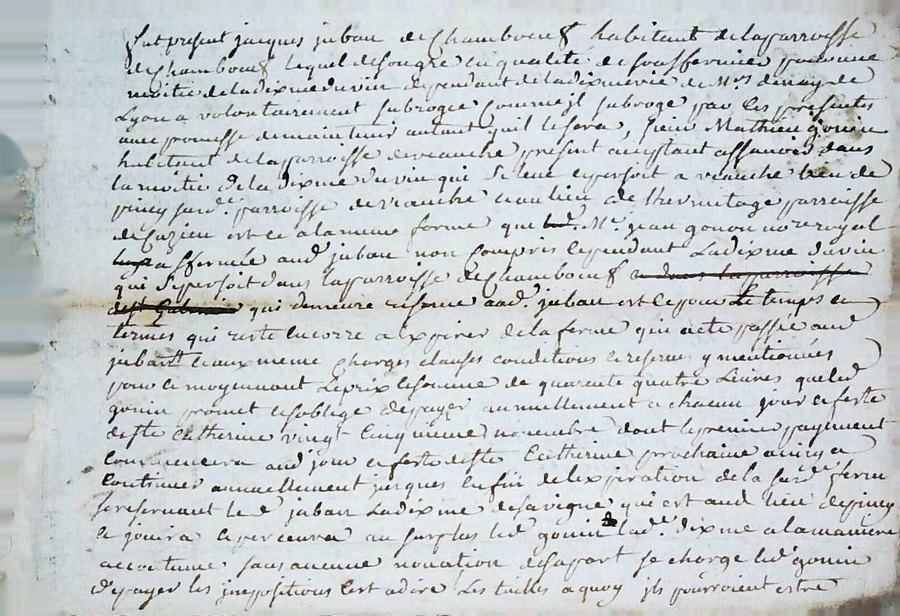 fut present jacques jaban de Chamboeuf habitant de la parroisse
de Chamboeuf lequel de son gre en qualité de sousfermier pour une
moitié de la dixme du vin dependant de la dixmerie de Mrs d'enay de
Lyon a volontairement subrogé comme jl subroge par ces presentes
avec promesse de maintenir autant quil le sera, sieur Mathieu gonin
habitant de la parroisse de veauche present acceptant assavoir dans
la moitié de la dixme du vin qui se leve et persoit a veauche lieu de
pincy surd. parroisse de veauche et au lieu de l'hermitage parroisse
de Cuzieu et ce a la meme forme que Me. jean gonon nore royal
a affermé aud. jaban non compris cependant La dixme du vin
qui se persoit dans la parroisse de Chamboeuf
qui demeure reservé aud. jaban et ce pour le temps et
termes qui reste encorre a expirer de la ferme qui a ete passée aud
jaban et aux meme charges clauses conditions et reserves y mentionnées
pour et moyennant le prix et somme de quarente quatre Livres que led
gonin promet et s'oblige de payer annuellement a chacun jour et feste
de ste Catherine vingt cinquieme novembre dont le premier payement
commencera aud jour et feste de ste Catherine prochaine ainsy a
continuer annuellement jusques enfin de l'expiration de la surd. ferme
se reservant led jaban La dixme de sa vigne qui est aud lieu de pincy
et jouira et percevra au surplus led. gonin lad. dixme a la maniere
accoutumé sans aucune novation de sa part se charge led. gonin
de payer les jmpositions c'est a dire Les tailles a quoy jls pourroient estre